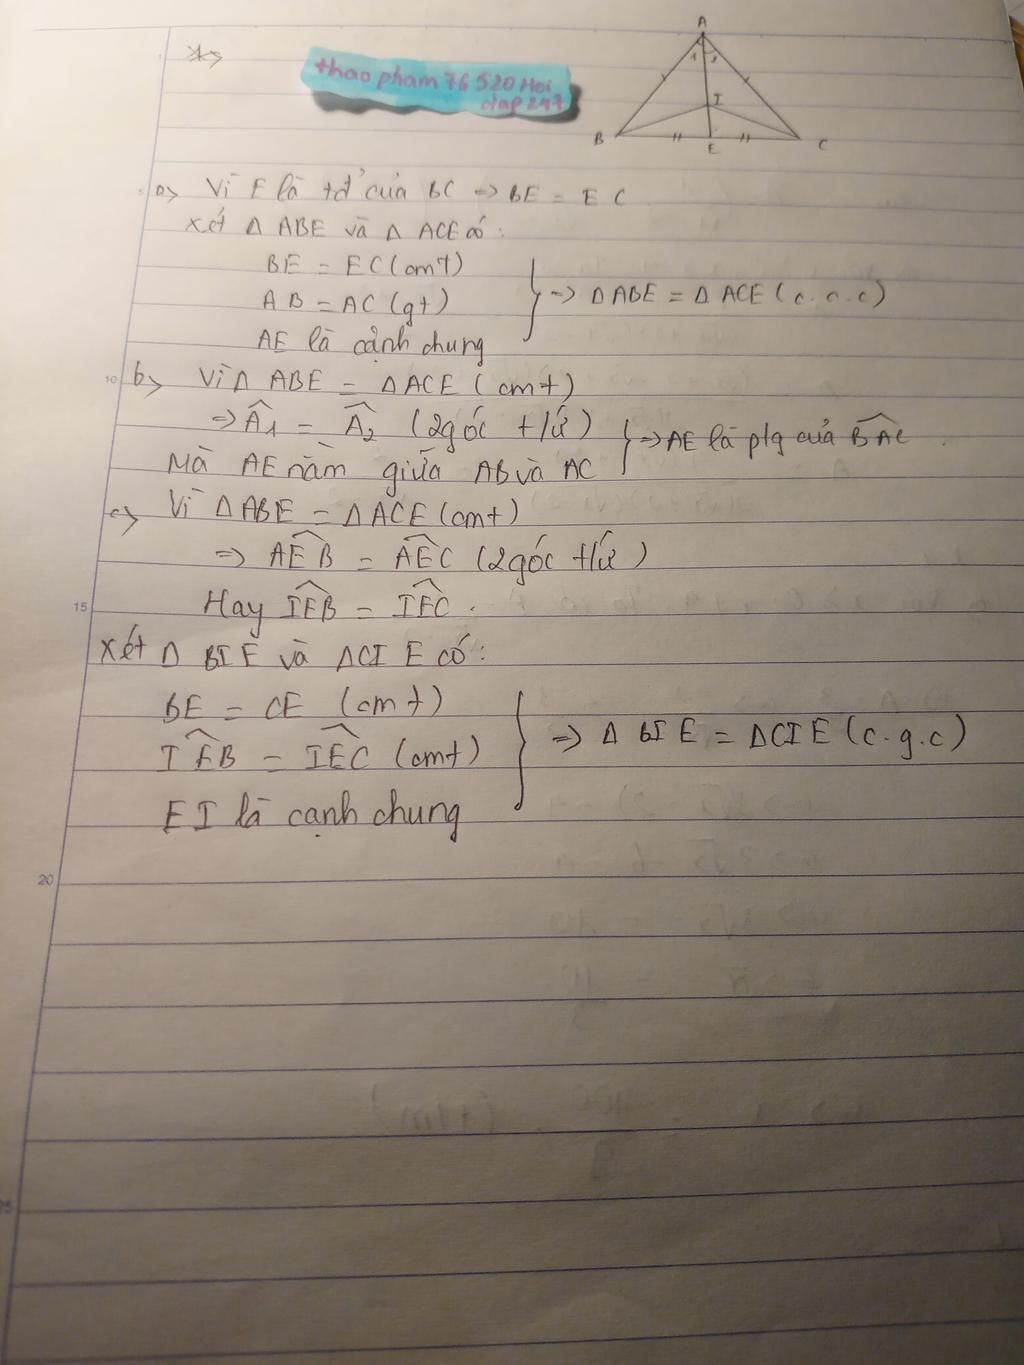 *>
thao pham 76 520 Hoi
dap 247
A
1 2
I
B
E
C
a> Vì E là tđ của BC => BE = EC
Xét Δ ABE và Δ ACE có:
BE = EC (cmt)
AB = AC (gt)
=> Δ ABE = Δ ACE (c.c.c)
AE là cạnh chung
10
b> Vì Δ ABE = Δ ACE (cmt)
=> Â1 = Â2 (2 góc t/ứ)
=> AE là p/g của BAC
Mà AE nằm giữa AB và AC
c> Vì Δ ABE = Δ ACE (cmt)
=> AEB = AEC (2 góc t/ứ)
15
Hay IEB = IEC.
Xét Δ BIE và ΔCIE có:
BE = CE (cmt)
IEB = IEC (cmt)
=> Δ BIE = ΔCIE (c.g.c)
EI là cạnh chung
20